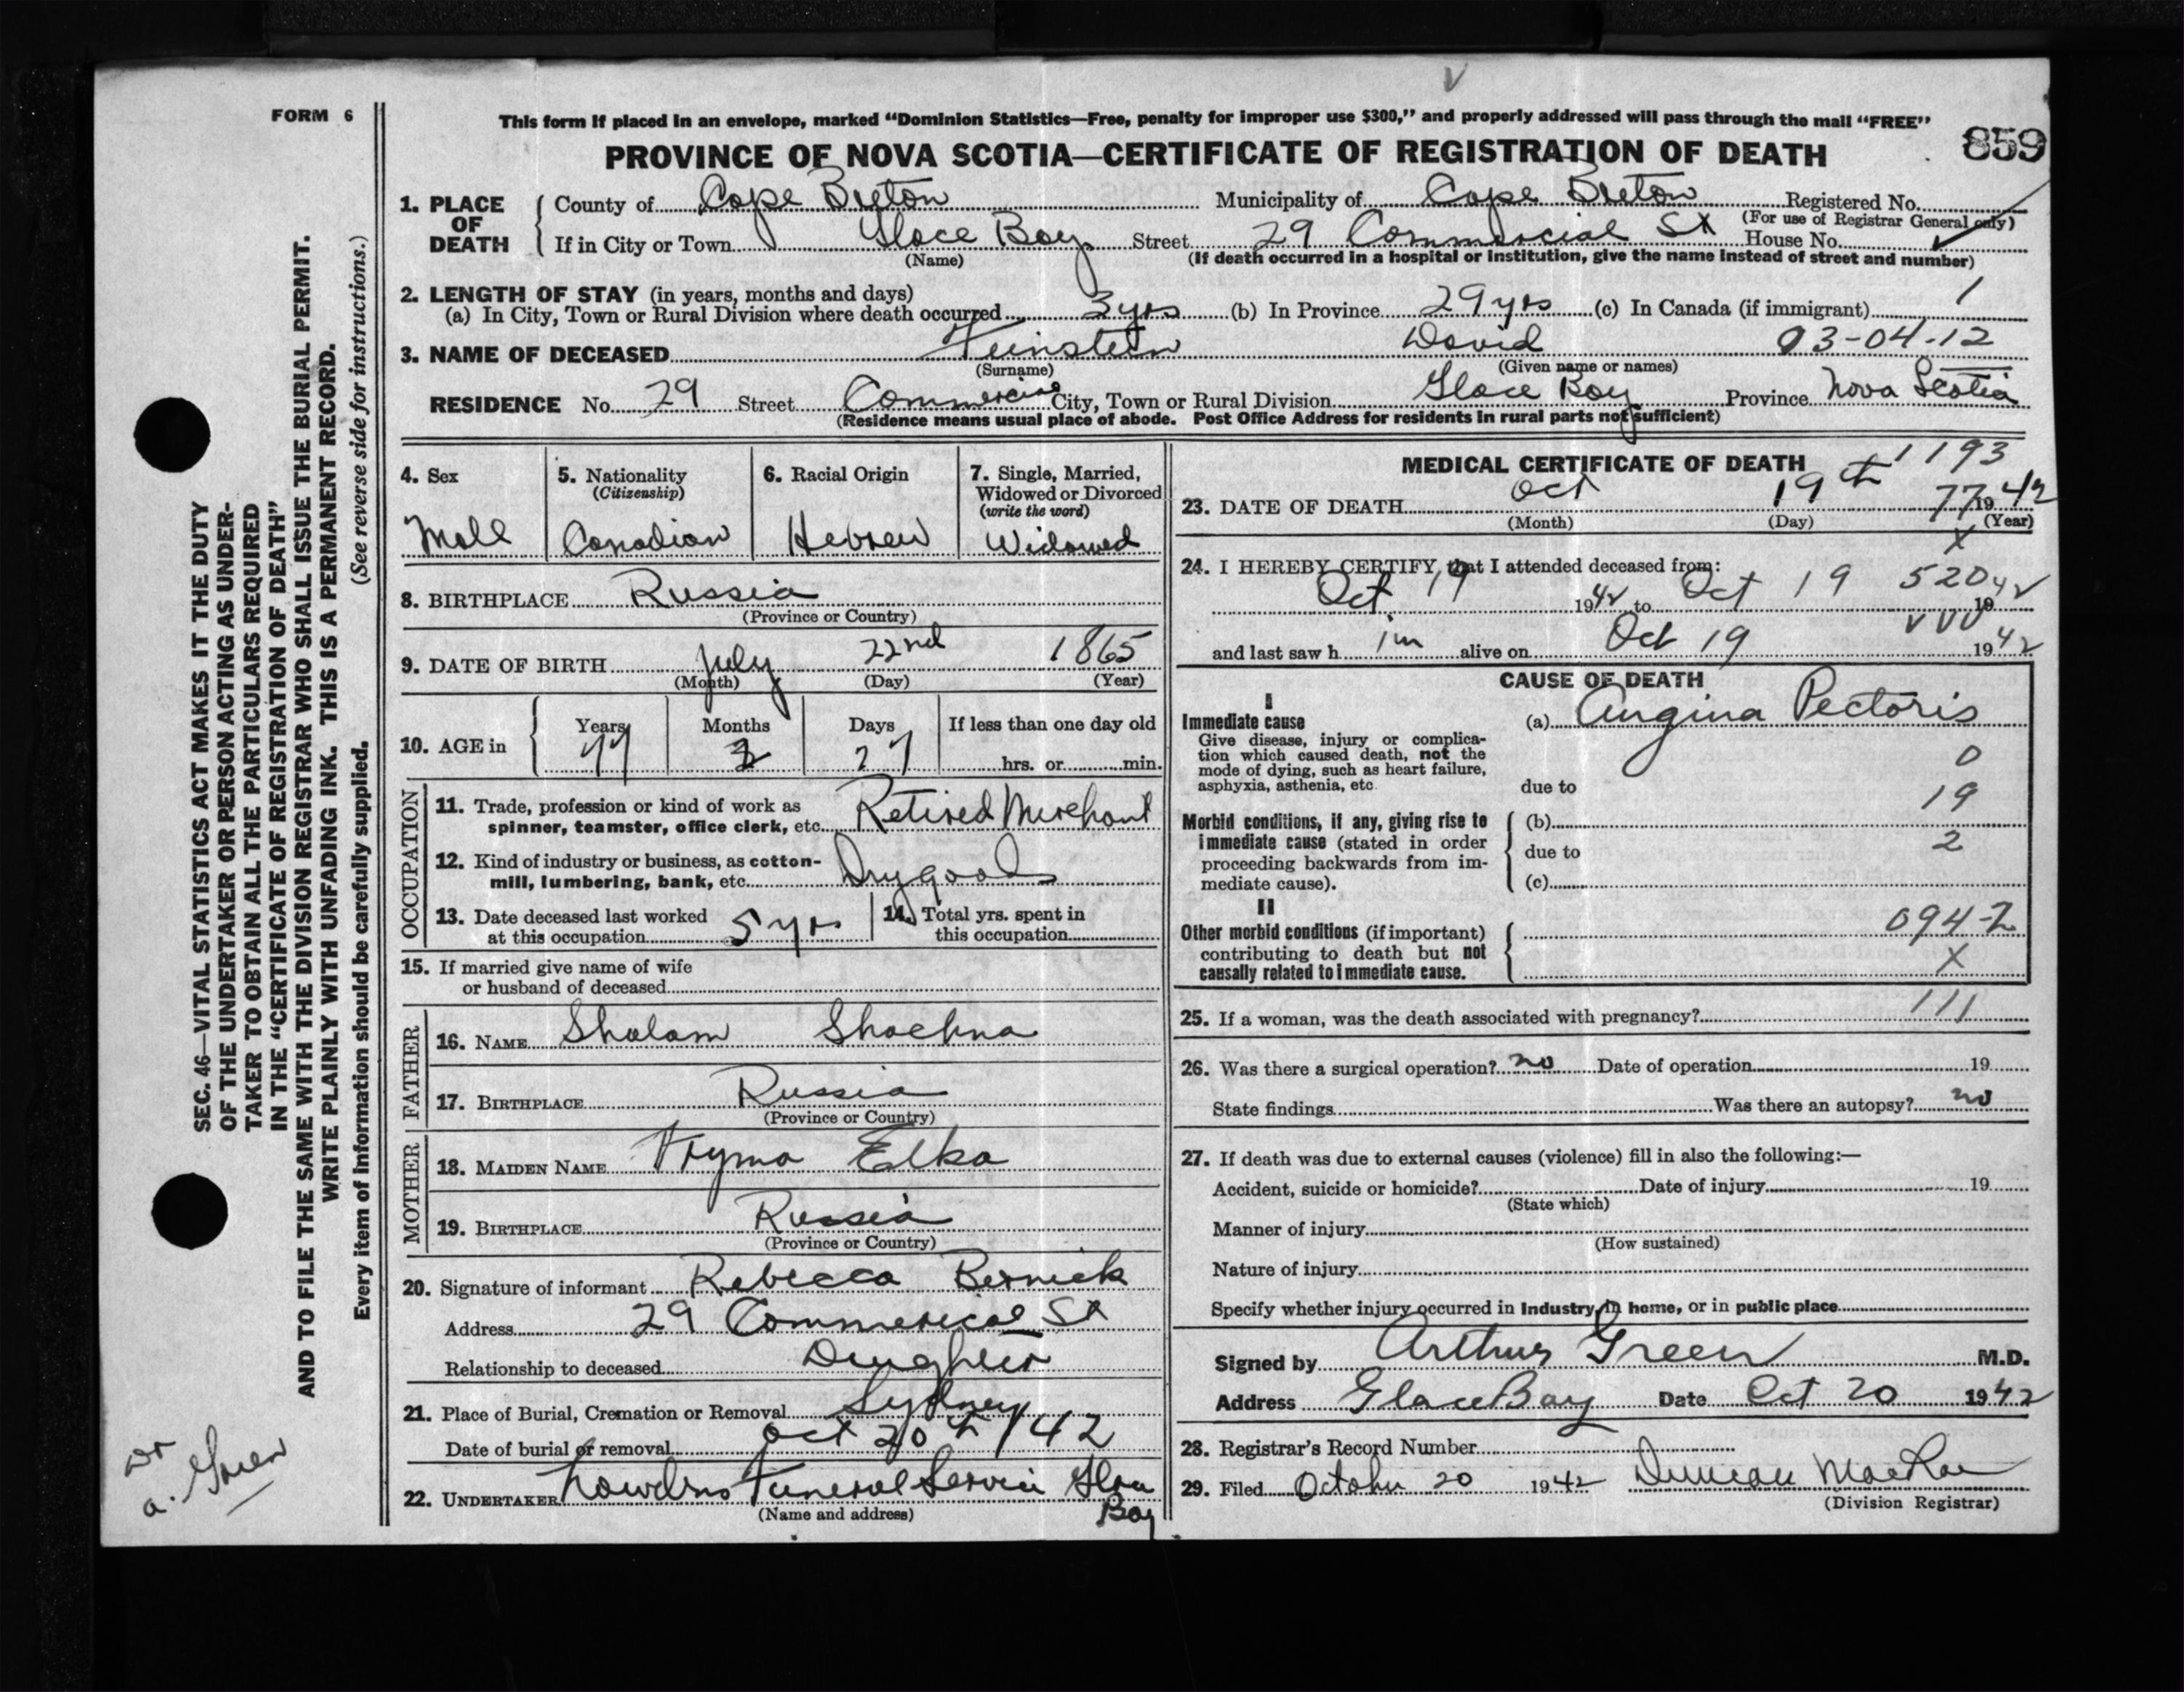 FORM 6
This form if placed in an envelope, marked “Dominion Statistics—Free, penalty for improper use $300,” and properly addressed will pass through the mail “FREE”
859
PROVINCE OF NOVA SCOTIA—CERTIFICATE OF REGISTRATION OF DEATH
1. PLACE OF DEATH
County of Cape Breton Municipality of Cape Breton Registered No.
(For use of Registrar General only)
If in City or Town Glace Bay Street 29 Commercial St House No.
(Name) (If death occurred in a hospital or institution, give the name instead of street and number)
2. LENGTH OF STAY (in years, months and days)
(a) In City, Town or Rural Division where death occurred 3 yrs (b) In Province 29 yrs (c) In Canada (if immigrant) 1
3. NAME OF DECEASED Feinstein David 03-04-12
(Surname) (Given name or names)
RESIDENCE No. 29 Street Commercial City, Town or Rural Division Glace Bay Province Nova Scotia
(Residence means usual place of abode. Post Office Address for residents in rural parts not sufficient)
4. Sex
Male
5. Nationality
(Citizenship)
Canadian
6. Racial Origin
Hebrew
7. Single, Married,
Widowed or Divorced
(write the word)
Widowed
8. BIRTHPLACE Russia
(Province or Country)
9. DATE OF BIRTH July 22nd 1865
(Month) (Day) (Year)
10. AGE in
Years Months Days If less than one day old
77 2 27 hrs. or min.
OCCUPATION
11. Trade, profession or kind of work as
spinner, teamster, office clerk, etc. Retired Merchant
12. Kind of industry or business, as cotton-
mill, lumbering, bank, etc. Drygoods
13. Date deceased last worked
at this occupation 5 yrs
14. Total yrs. spent in
this occupation
15. If married give name of wife
or husband of deceased
FATHER
16. NAME Sholam Shachna
17. BIRTHPLACE Russia
(Province or Country)
MOTHER
18. MAIDEN NAME Fryma Elka
19. BIRTHPLACE Russia
(Province or Country)
20. Signature of informant Rebecca Bernick
Address 29 Commerical St
Relationship to deceased Daughter
21. Place of Burial, Cremation or Removal Sydney
Date of burial or removal Oct 20th/42
22. UNDERTAKER Funeral Service Glace
Bay
(Name and address)
MEDICAL CERTIFICATE OF DEATH
1193
23. DATE OF DEATH Oct 19th 77 1942
(Month) (Day) (Year)
X
24. I HEREBY CERTIFY, that I attended deceased from:
520
Oct 19 1942 to Oct 19 1942
VVV
and last saw h im alive on Oct 19 1942
CAUSE OF DEATH
I
Immediate cause
(a) Angina Pectoris
Give disease, injury or complica-
tion which caused death, not the
mode of dying, such as heart failure,
asphyxia, asthenia, etc.
0
due to
19
Morbid conditions, if any, giving rise to
immediate cause (stated in order
proceeding backwards from im-
mediate cause).
(b)
due to
2
(c)
II
Other morbid conditions (if important)
contributing to death but not
causally related to immediate cause.
094-2
X
111
25. If a woman, was the death associated with pregnancy?
26. Was there a surgical operation? no Date of operation 19
State findings Was there an autopsy? no
27. If death was due to external causes (violence) fill in also the following:—
Accident, suicide or homicide? Date of injury 19
(State which)
Manner of injury
(How sustained)
Nature of injury
Specify whether injury occurred in Industry, in home, or in public place
Signed by Arthur Green M.D.
Address Glace Bay Date Oct 20 1942
28. Registrar's Record Number
29. Filed October 20 1942 Duncan MacRae
(Division Registrar)
SEC. 46—VITAL STATISTICS ACT MAKES IT THE DUTY
OF THE UNDERTAKER OR PERSON ACTING AS UNDER-
TAKER TO OBTAIN ALL THE PARTICULARS REQUIRED
IN THE “CERTIFICATE OF REGISTRATION OF DEATH”
AND TO FILE THE SAME WITH THE DIVISION REGISTRAR WHO SHALL ISSUE THE BURIAL PERMIT.
WRITE PLAINLY WITH UNFADING INK. THIS IS A PERMANENT RECORD.
Every item of Information should be carefully supplied. (See reverse side for instructions.)
Dr
A. Green